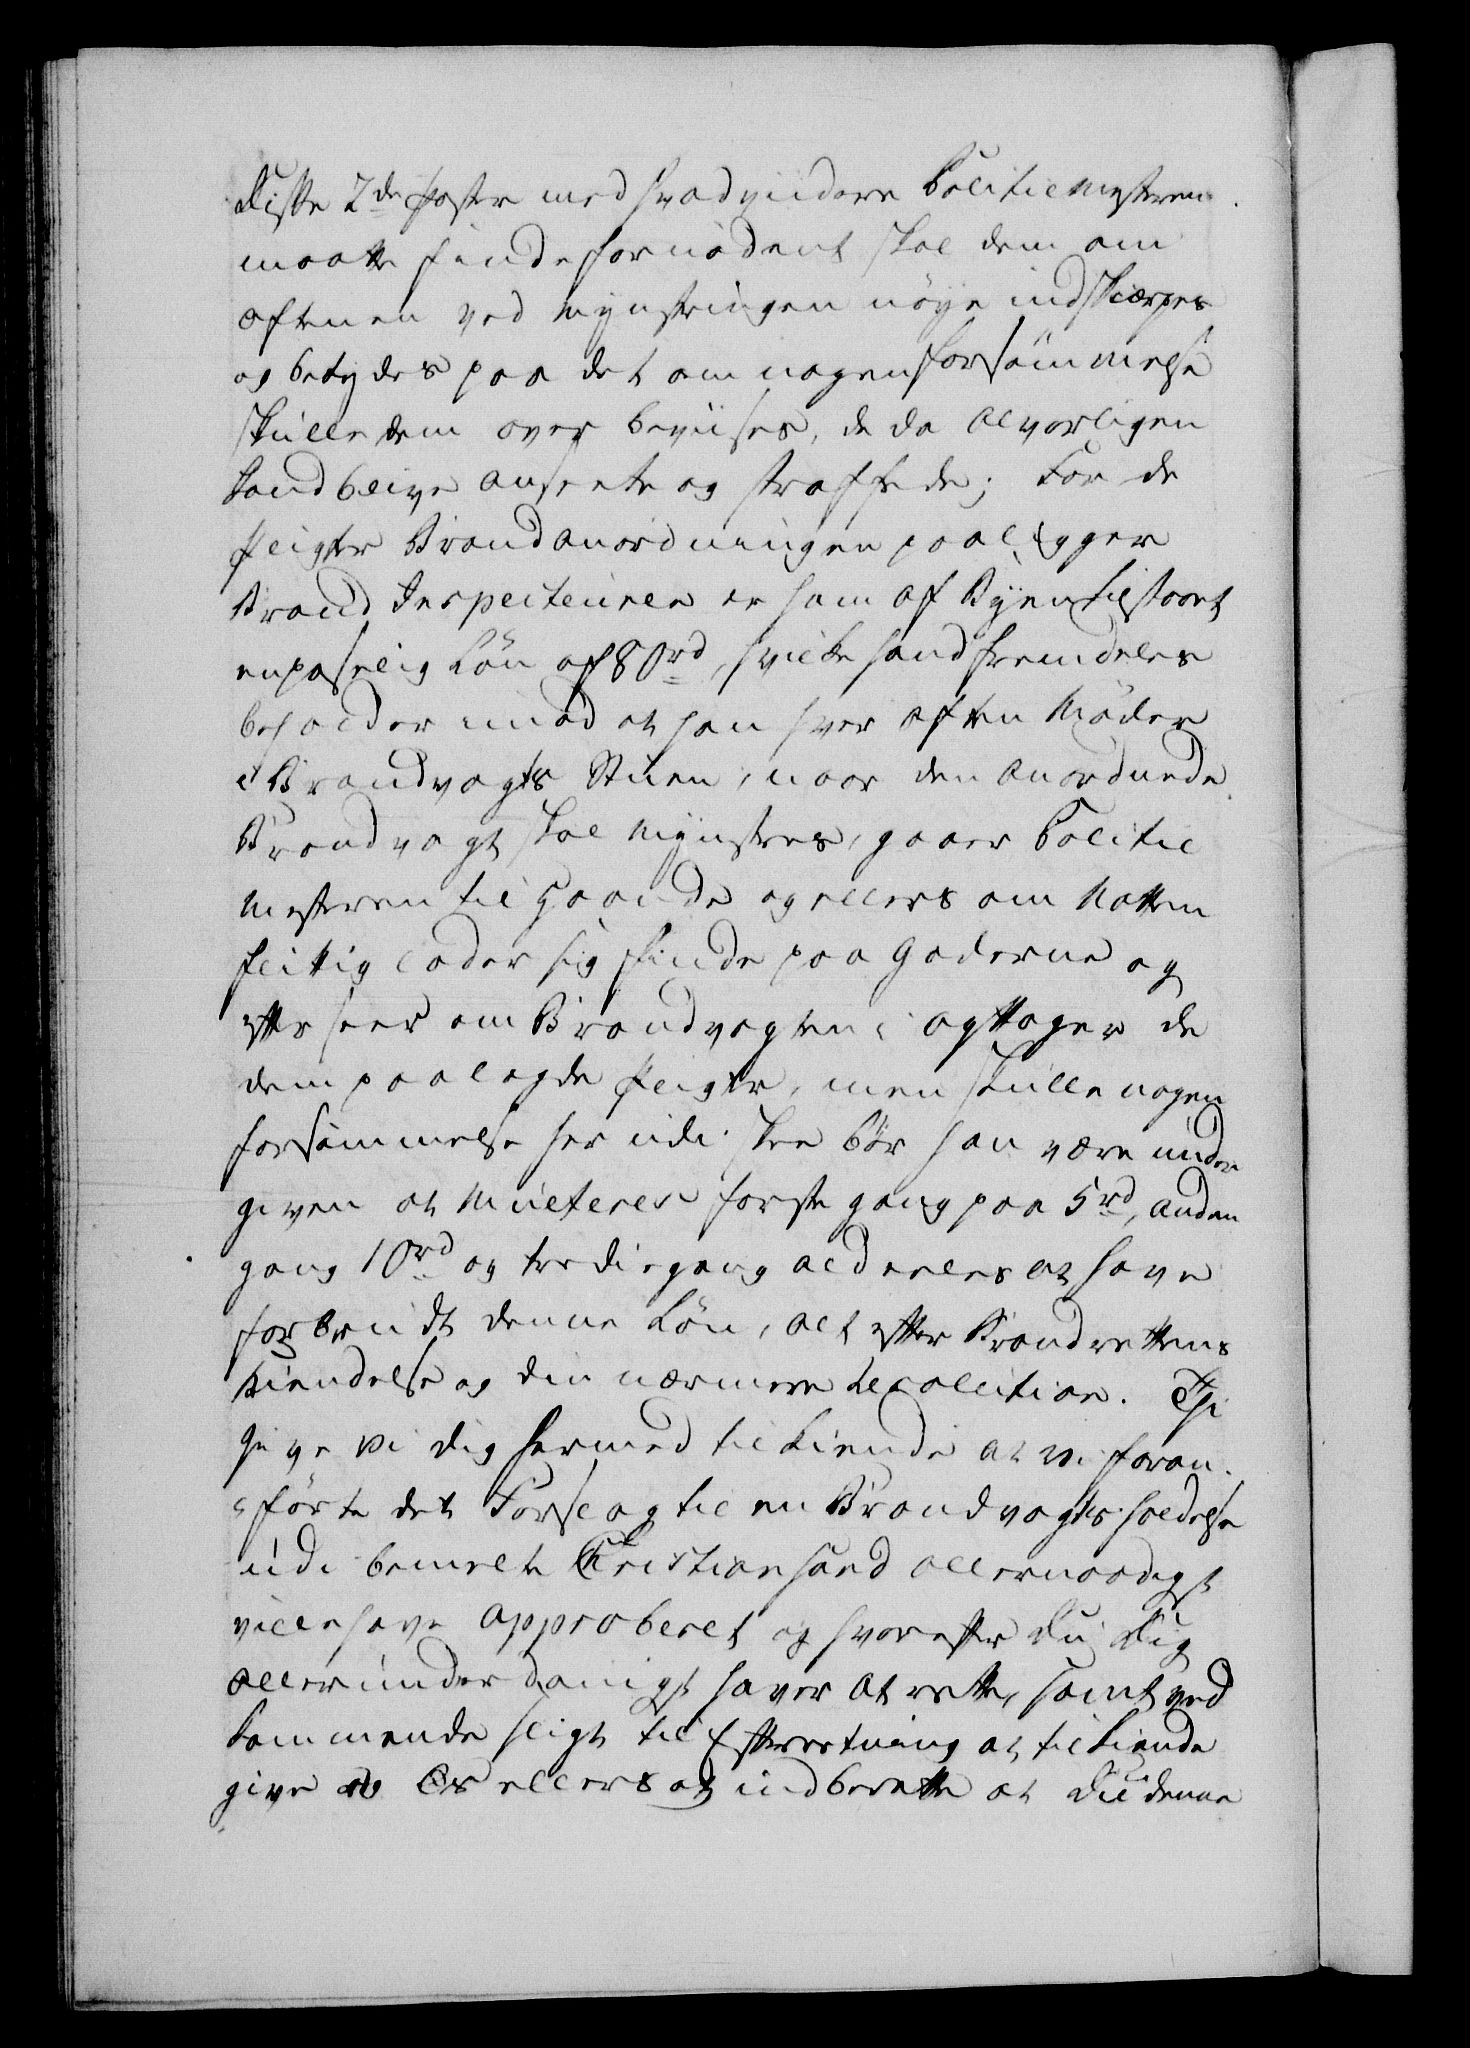 Disse 2de Poster med hvad viidere Politiemesteren
maatte finde fornödent skal dem om
aftenen ved Mynstringen nöye indskiærpes
og betydes paa det om nogen Forsömmelse
skulle dem over beviises, de da alvorligen
kand blive ansete og straffede; For de
Pligter Brandanordningen paalegger
Brand Inspecteuren er ham af Byen tilstaaet
en passelig Lön af 80rd, hvilke hand fremdeles
beholder imod at han hver aften Möder
i Brandvagts Stuen, naar den anordnede
Brandvagt skal Mynstres, gaaer Politie
Mesteren til Haande og ellers om Natten
flittig lader sig finde paa Gaderne og
efterseer om Brandvagten i agttager de
dem paalagde Pligter, men skulle nogen
forsömmelse her udi skee bör han være under
given at Mulcteres förste gang paa 5rd, anden
gang 10rd og tredie gang aldeeles at have
forbrudt denne Lön, alt efter Brandrettens
Kiendelse og din nærmere Resolution. Thi
give vi dig hermed tilkiende at vi foran-
förte det Forslag til en Brandvagts holdelse
udi bemelte Christiansand allernaadigst
ville have approberet og hvorefter Du Dig
allerunderdanigst haver at rette, samt ved
kommende sligt til Efterretning at tilkiende
give og Os ellers at indberette at Du denne